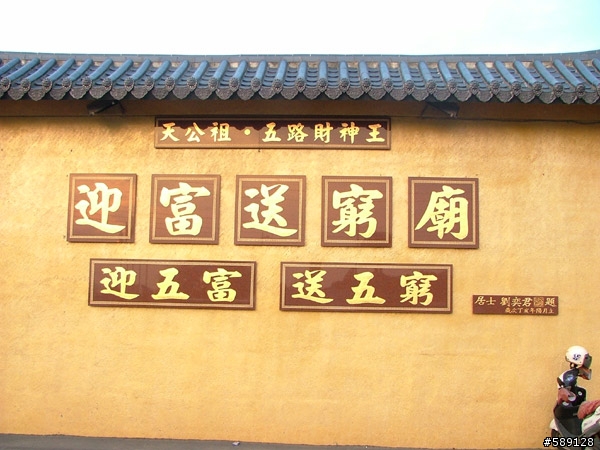 天公祖·五路財神王
迎富送窮廟
迎五富 送五窮
居士 劉奕君 題
歲次丁亥年陽月立
#589128